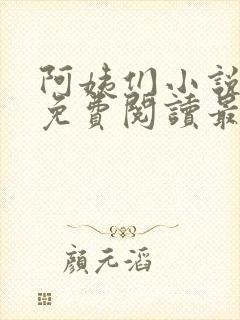 阿姨们小說
免費閱讀最
顏元滔